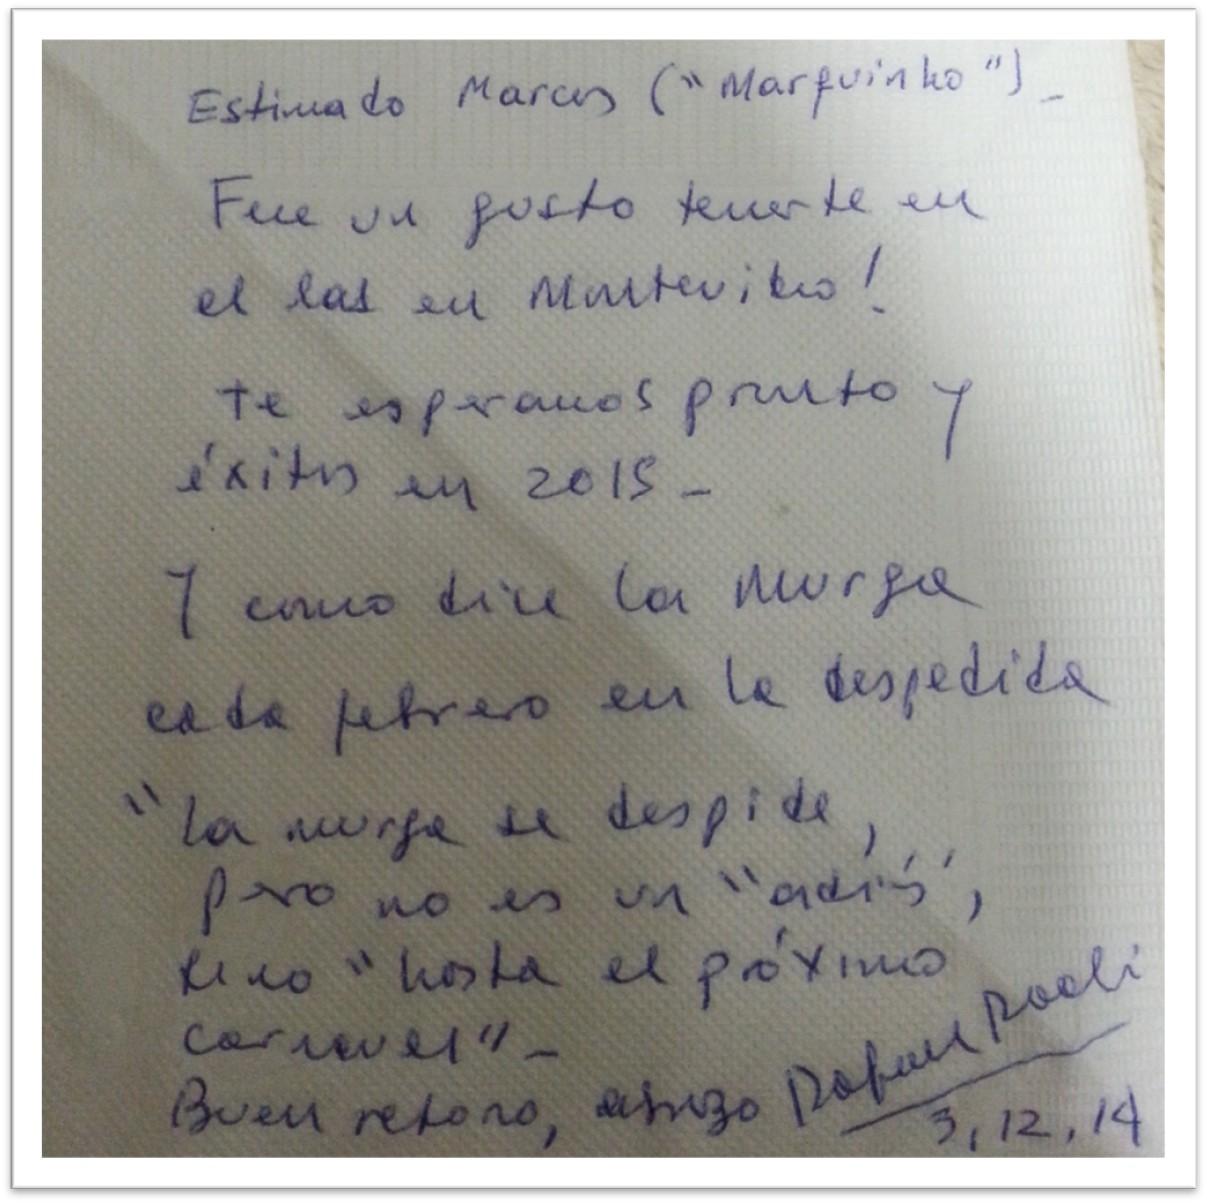 Estimado Marcos ("Marquinho") -
Fue un gusto tenerte en
el las en Montevideo!
te esperamos pronto y
éxitos en 2015 -
Y como dice la Murga
cada febrero en la despedida
"la murga se despide,
pero no es un "adiós",
sino "hasta el próximo
carnaval" -
Buen retorno, abrazo Rafael
3, 12, 14